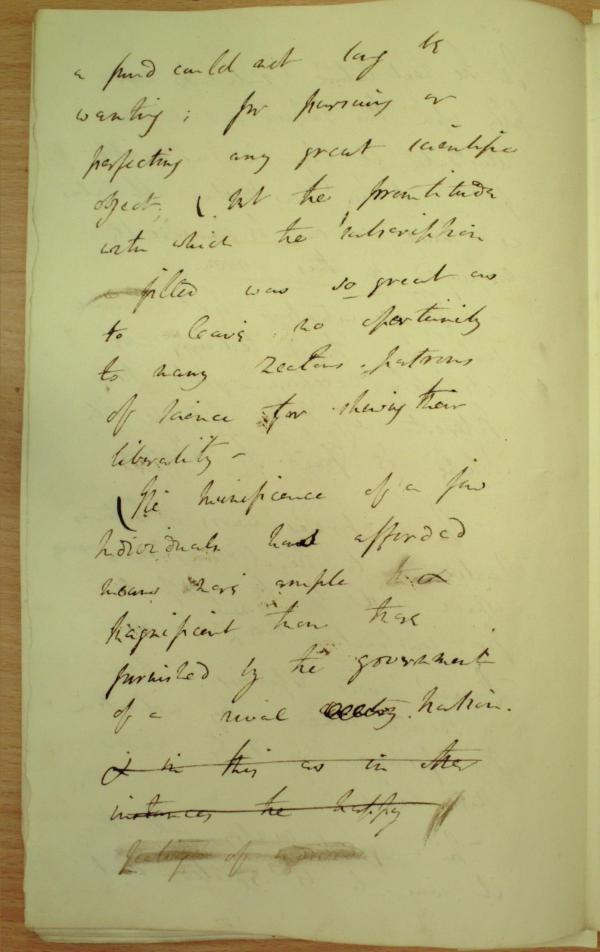 a fund could not long be
wanting; for pursuing or
perfecting any great scientific
object; ( but the promtitude
with which the subscription
filled was so great as
to leave no opertunity
to many zealous patrons
of science for shewing their
liberality -
(The munificence of a few
Individuals has afforded
means more ample &
magnificent than those
furnished by the government
of a rival country. Nation.
& in this as in other
instances the happy
feelings of a